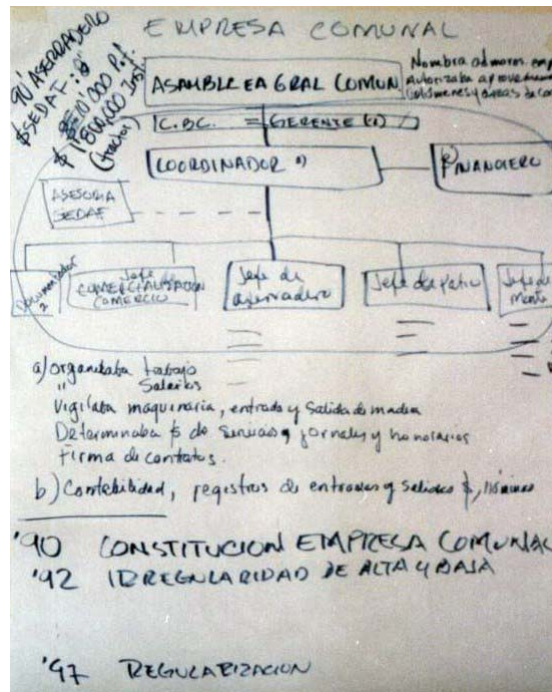 EMPRESA COMUNAL
90' ASERRADERO
$ SEDAF:
10 000 P.F.
$ 1'800,000 Inst.
(tractor)
ASAMBLEA GRAL COMUN.
Nombra admors. emp
Autorizaba aprovecham
volúmenes y áreas de co
C.B.C. = GERENTE
COORDINADOR a)
b) FINANCIERO
ASESORIA
SEDAF
Documentador
2
Jefe de
COMERCIALIZACION
COMERCIO
Jefe de
aserradero
Jefe de patio
Jefe de
mant
a) organizaba trabajo
" Salarios
Vigilaba maquinaria, entrada y salida de madera
Determinaba $ de jornales y honorarios
Firma de contratos.
b) Contabilidad, registros de entradas y salidas $, nóminas
'90 CONSTITUCION EMPRESA COMUNAL
'92 IRREGULARIDAD DE ALTA Y BAJA
'97 REGULARIZACION